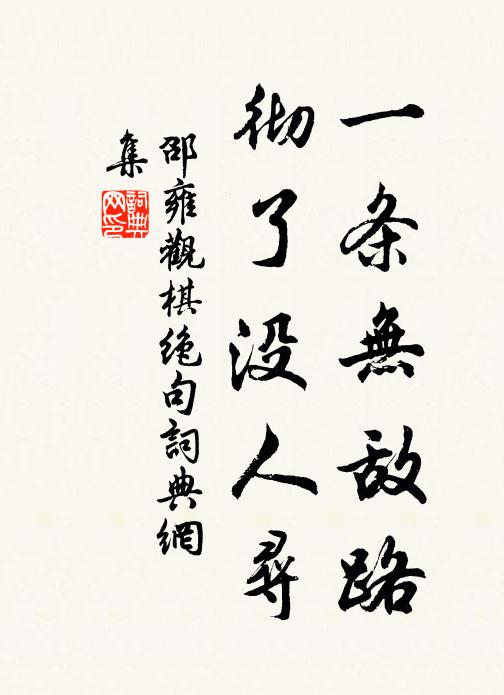 一条無敌路
彻了没人尋
邵雍觀棋绝句詞典網
集
詞典
网印